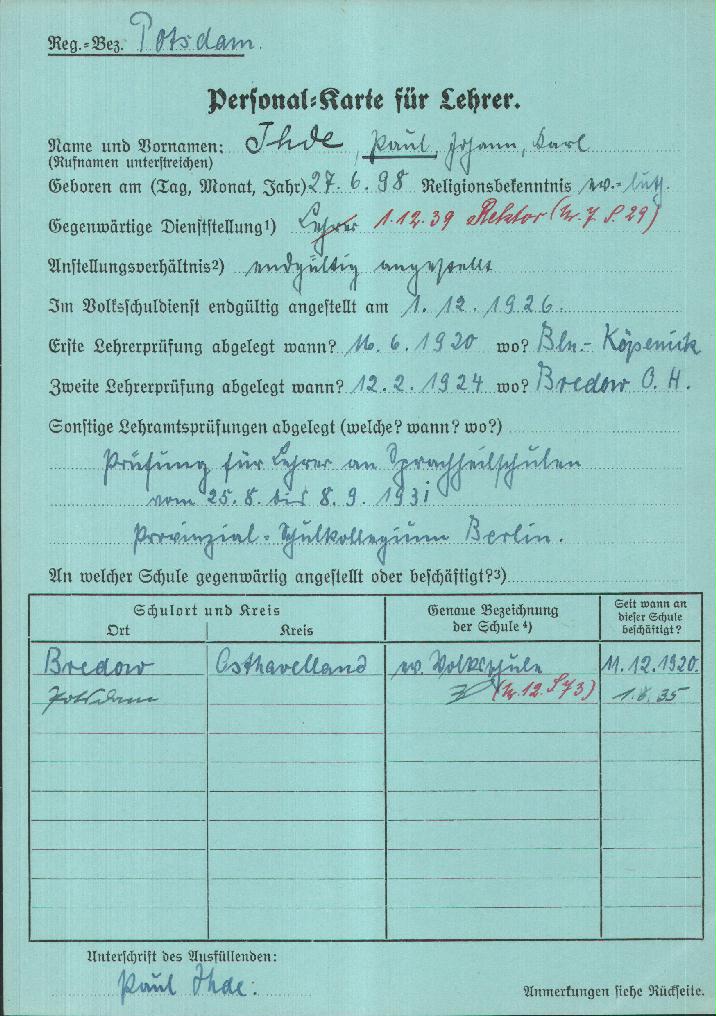 Reg.-Bez. Potsdam.
Personal-Karte für Lehrer.
Name und Vornamen: Ihde, Paul, Johann, Karl
(Rufnamen unterstreichen)
Geboren am (Tag, Monat, Jahr) 27. 6. 98 Religionsbekenntnis ev.-luth.
Gegenwärtige Dienststellung¹) Lehrer 1.12.39 Rektor (Nr. 7 S. 29)
Anstellungsverhältnis²) endgültig angestellt
Im Volksschuldienst endgültig angestellt am 1. 12. 1926.
Erste Lehrerprüfung abgelegt wann? 16. 6. 1920 wo? Bln.-Köpenick
Zweite Lehrerprüfung abgelegt wann? 12. 2. 1924 wo? Bredow O. H.
Sonstige Lehramtsprüfungen abgelegt (welche? wann? wo?)
Prüfung für Lehrer an Sprachheilschulen
vom 25. 8. bis 8. 9. 1931
Provinzial-Schulkollegium Berlin.
An welcher Schule gegenwärtig angestellt oder beschäftigt?³)
Schulort und Kreis Genaue Bezeichnung der Schule ⁴) Seit wann an dieser Schule beschäftigt?
Ort Kreis
Bredow Osthavelland ev. Volksschule 11. 12. 1920.
Potsdam (Nr. 12 S 73) 1. 8. 35
Unterschrift des Ausfüllenden:
Paul Ihde.
Anmerkungen siehe Rückseite.